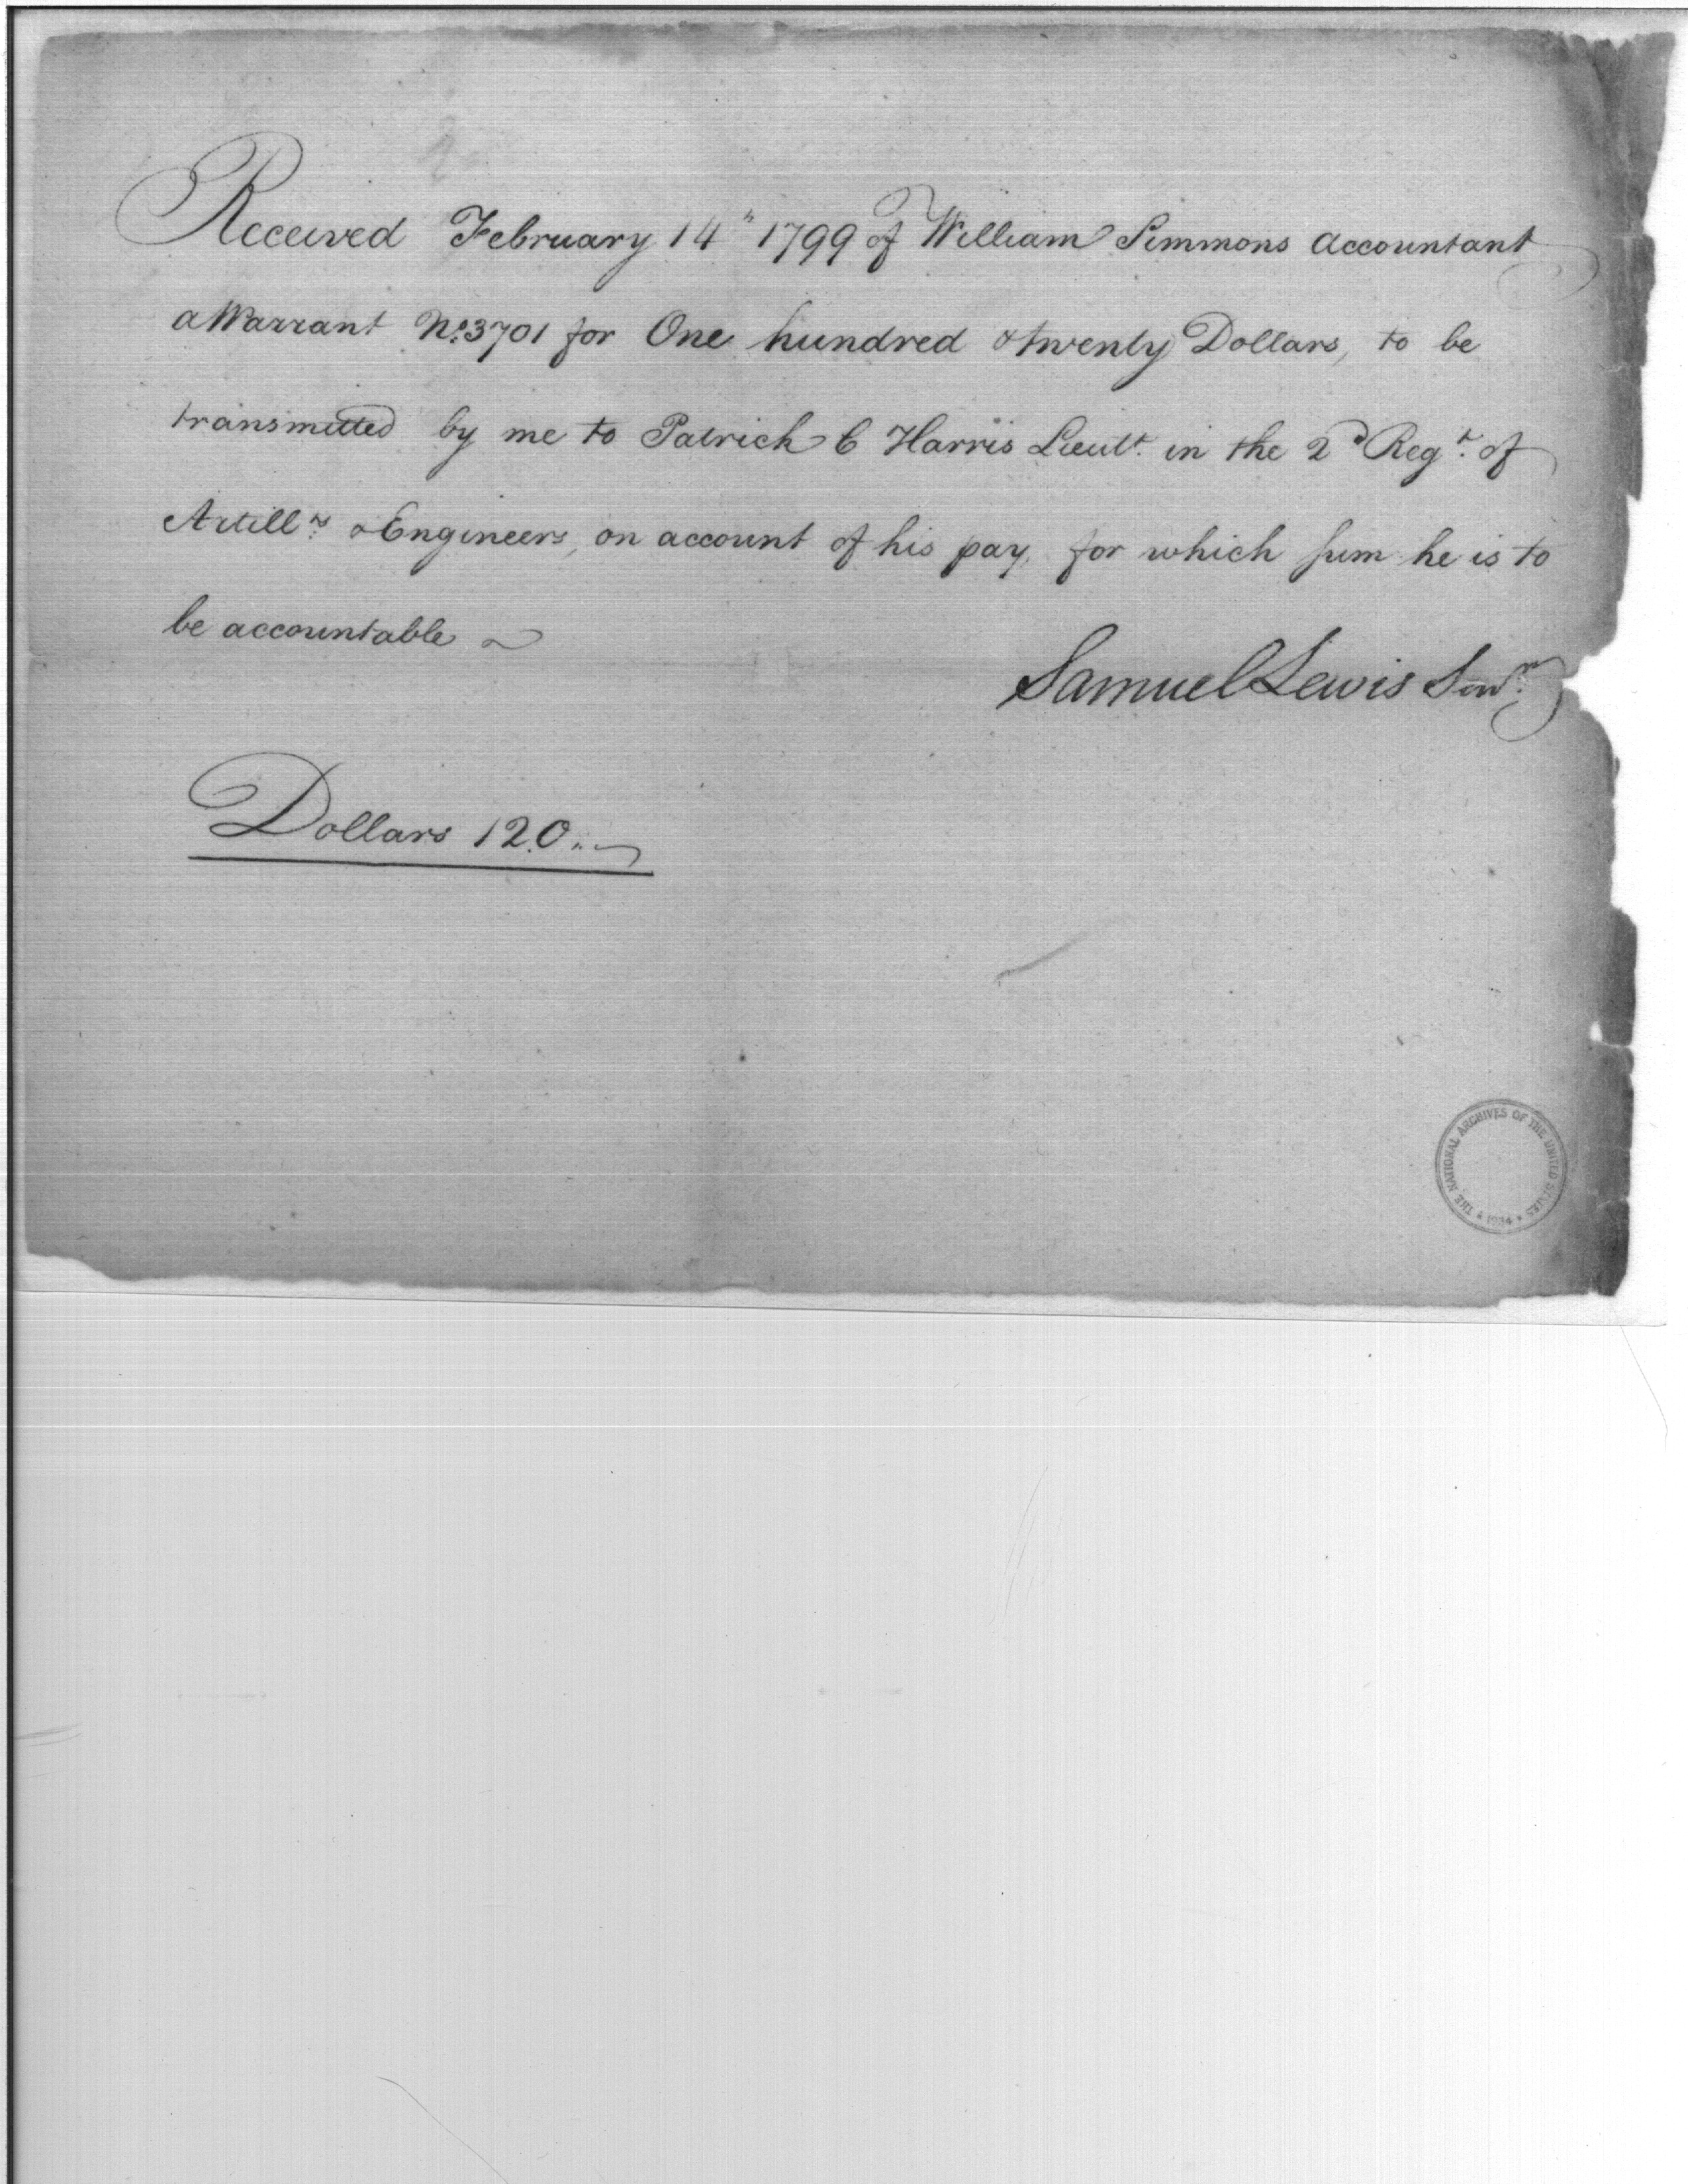 Received February 14th 1799 of William Simmons Accountant
a Warrant No. 3701 for One hundred & twenty Dollars, to be
transmitted by me to Patrick C Harris Lieut. in the 2d Regt. of
Artillrs & Engineers, on account of his pay, for which sum he is to
be accountable
Samuel Lewis Senr.
Dollars 120
THE NATIONAL ARCHIVES OF THE UNITED STATES
1934